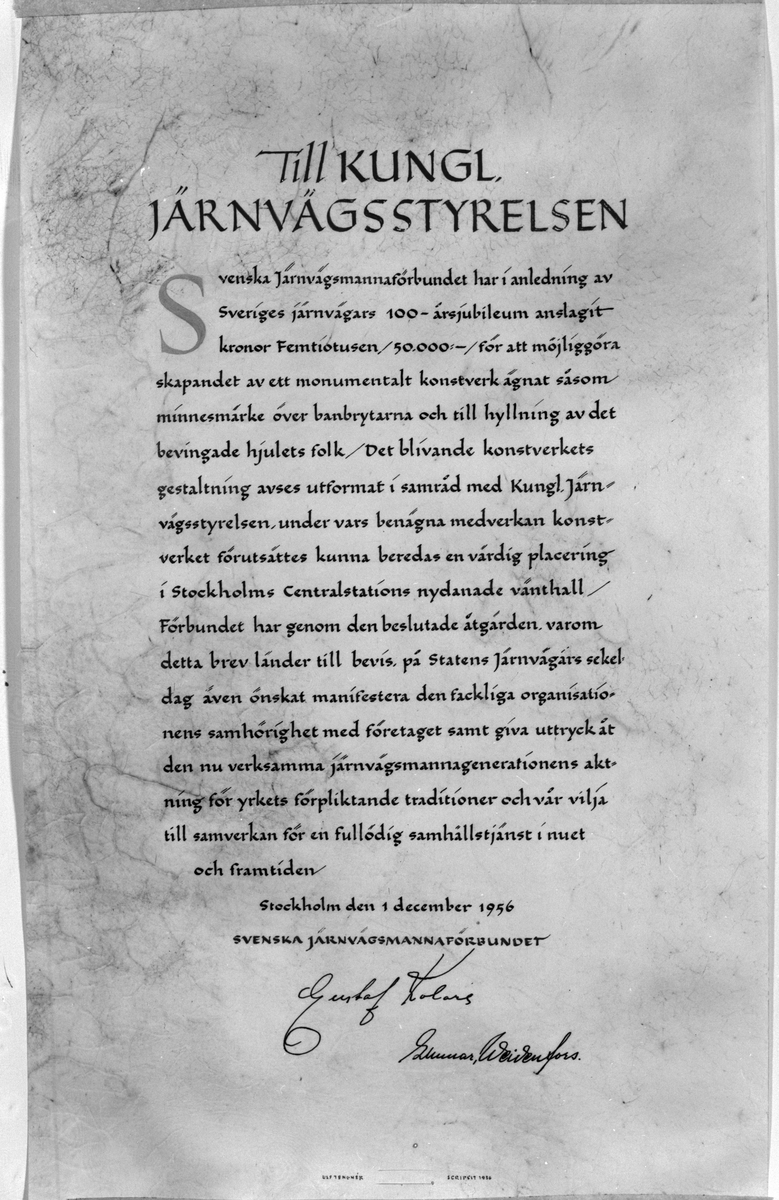 Till KUNGL.
JÄRNVÄGSSTYRELSEN
Svenska Järnvägsmannaförbundet har i anledning av
Sveriges järnvägars 100-årsjubileum anslagit
kronor Femtiotusen/50.000:-/för att möjliggöra
skapandet av ett monumentalt konstverk ägnat såsom
minnesmärke över banbrytarna och till hyllning av det
bevingade hjulets folk/Det blivande konstverkets
gestaltning avses utformat i samråd med Kungl. Järn-
vägsstyrelsen, under vars benägna medverkan konst-
verket förutsättes kunna beredas en värdig placering
i Stockholms Centralstations nydanade vänthall/
Förbundet har genom den beslutade åtgärden, varom
detta brev länder till bevis, på Statens Järnvägars sekel-
dag även önskat manifestera den fackliga organisatio-
nens samhörighet med företaget samt giva uttryck åt
den nu verksamma järnvägsmannagenerationens akt-
ning för yrkets förpliktande traditioner och vår vilja
till samverkan för en fullödig samhällstjänst i nuet
och framtiden/
Stockholm den 1 december 1956
SVENSKA JÄRNVÄGSMANNAFÖRBUNDET
Gustaf Kolare
Gunnar Weidenfors.
SCRIPSIT 1956